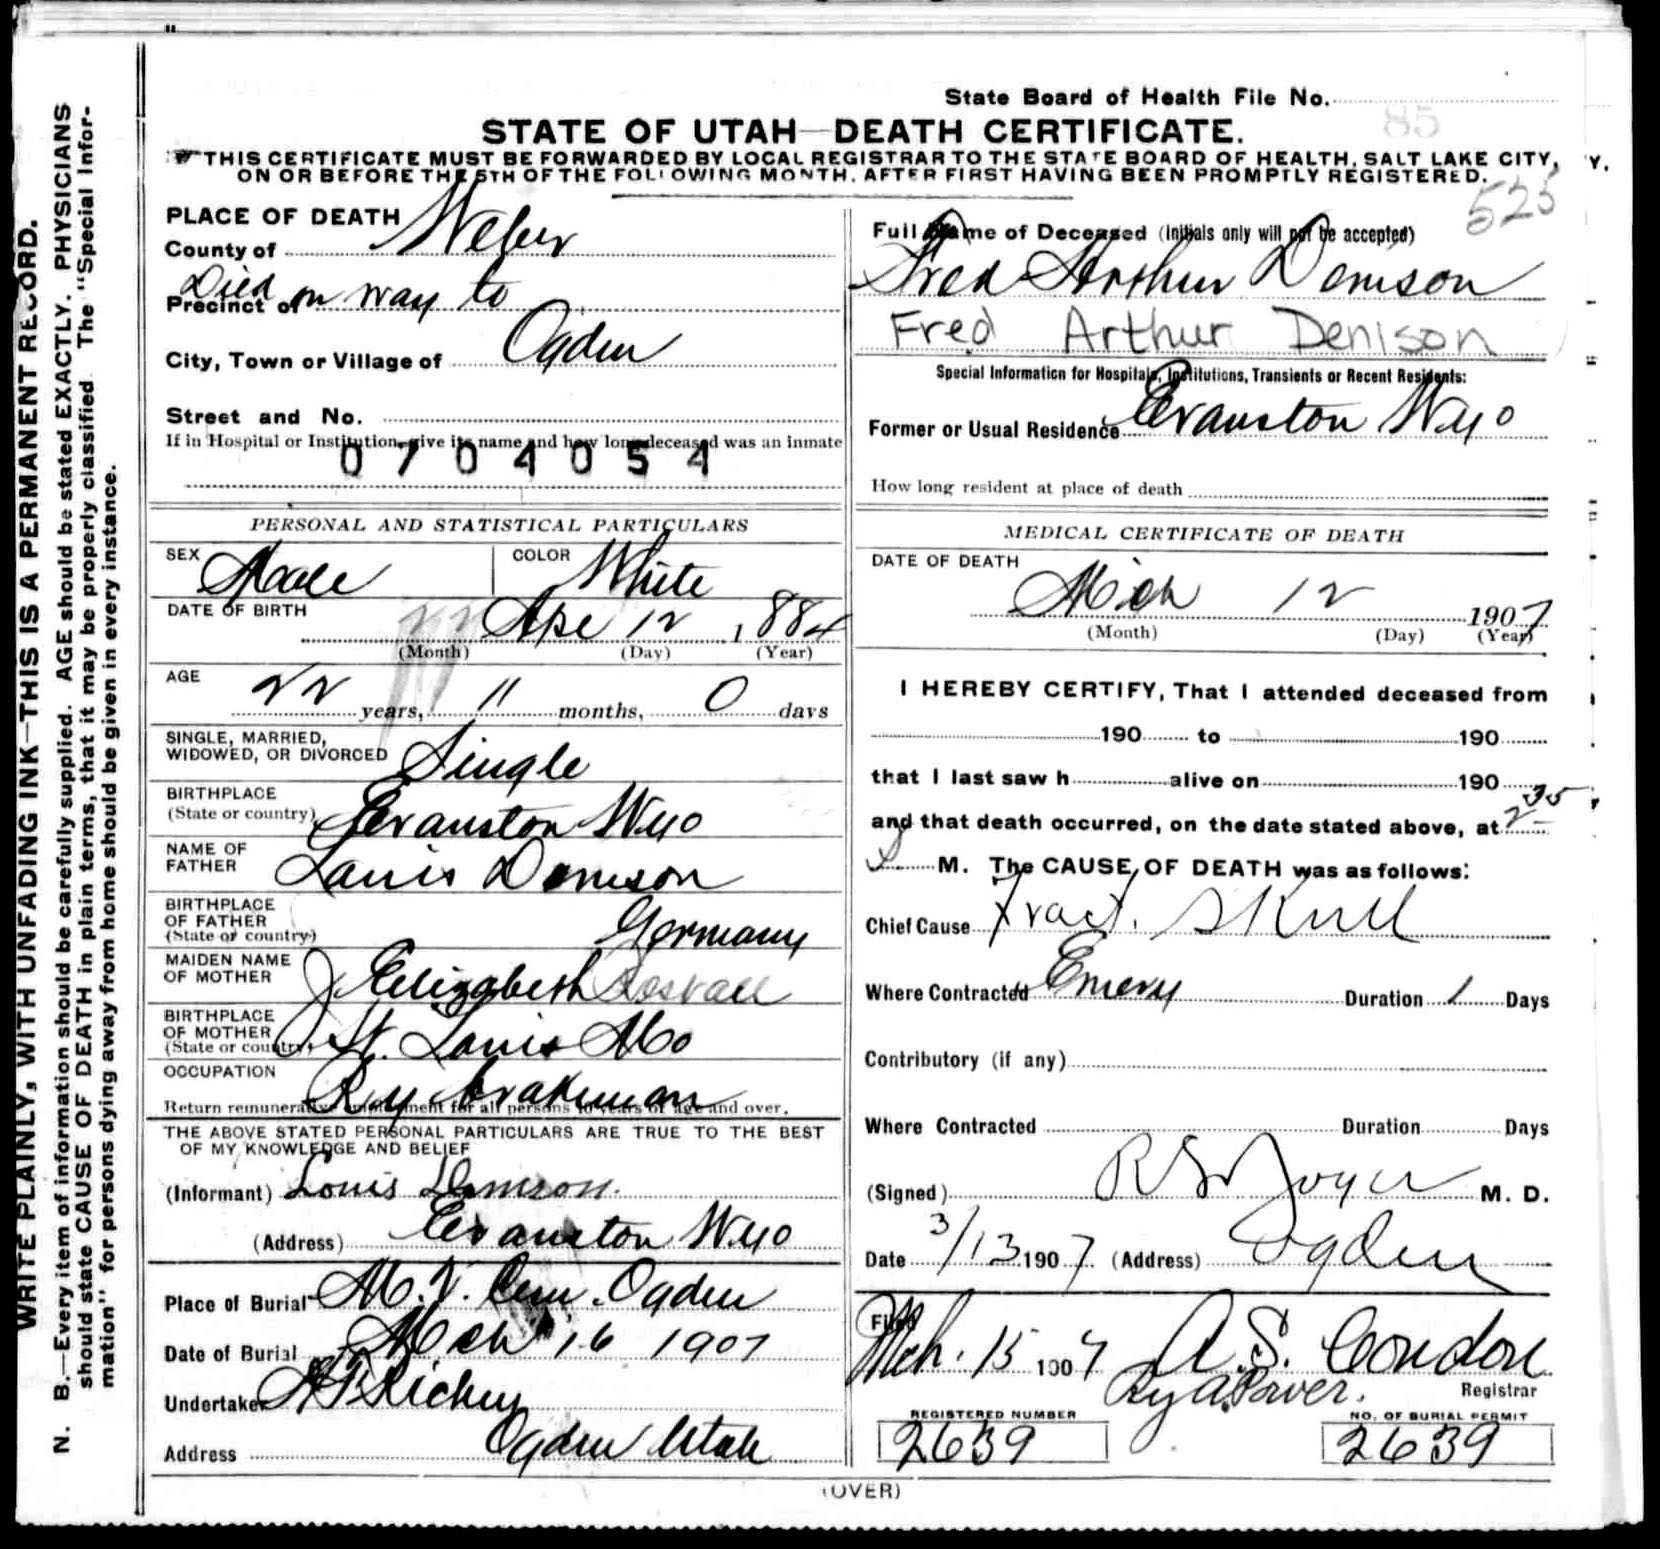 State Board of Health File No.
85
STATE OF UTAH—DEATH CERTIFICATE.
THIS CERTIFICATE MUST BE FORWARDED BY LOCAL REGISTRAR TO THE STATE BOARD OF HEALTH, SALT LAKE CITY,
ON OR BEFORE THE 5TH OF THE FOLLOWING MONTH, AFTER FIRST HAVING BEEN PROMPTLY REGISTERED.
525
WRITE PLAINLY, WITH UNFADING INK—THIS IS A PERMANENT RECORD.
N. B.—Every item of information should be carefully supplied. AGE should be stated EXACTLY. PHYSICIANS
should state CAUSE OF DEATH in plain terms, that it may be properly classified. The "Special Infor-
mation" for persons dying away from home should be given in every instance.
PLACE OF DEATH
County of Weber
Died on way to
Precinct of
City, Town or Village of Ogden
Street and No.
If in Hospital or Institution, give its name and how long deceased was an inmate
0704054
PERSONAL AND STATISTICAL PARTICULARS
SEX Male COLOR White
DATE OF BIRTH Apr 12 1884
(Month) (Day) (Year)
AGE 22 years, 11 months, 0 days
SINGLE, MARRIED,
WIDOWED, OR DIVORCED Single
BIRTHPLACE
(State or country) Evanston Wyo
NAME OF
FATHER Louis Denison
BIRTHPLACE
OF FATHER
(State or country) Germany
MAIDEN NAME
OF MOTHER Elizabeth
BIRTHPLACE
OF MOTHER
(State or country) St. Louis Mo
OCCUPATION Ry brakeman
Return remunerative employment for all persons 10 years of age and over.
THE ABOVE STATED PERSONAL PARTICULARS ARE TRUE TO THE BEST
OF MY KNOWLEDGE AND BELIEF
(Informant) Louis Denison.
(Address) Evanston Wyo
Place of Burial M. V. Cem. Ogden
Date of Burial Mch 16 1907
Undertaker Richey
Address Ogden Utah
Full Name of Deceased (Initials only will not be accepted)
Fred Arthur Denison
Fred Arthur Denison
Special Information for Hospitals, Institutions, Transients or Recent Residents:
Former or Usual Residence Evanston Wyo
How long resident at place of death
MEDICAL CERTIFICATE OF DEATH
DATE OF DEATH
Mch 12 1907
(Month) (Day) (Year)
I HEREBY CERTIFY, That I attended deceased from
190 to 190
that I last saw h alive on 190
and that death occurred, on the date stated above, at 2 35
M. The CAUSE OF DEATH was as follows:
Chief Cause Fract. Skull
Where Contracted Emery Duration 1 Days
Contributory (if any)
Where Contracted Duration Days
(Signed) M. D.
Date 3/13 1907 (Address) Ogden
Filed
Mch. 15 1907 A. S. Condon
Registrar
REGISTERED NUMBER
2639
NO. OF BURIAL PERMIT
2639
(OVER)